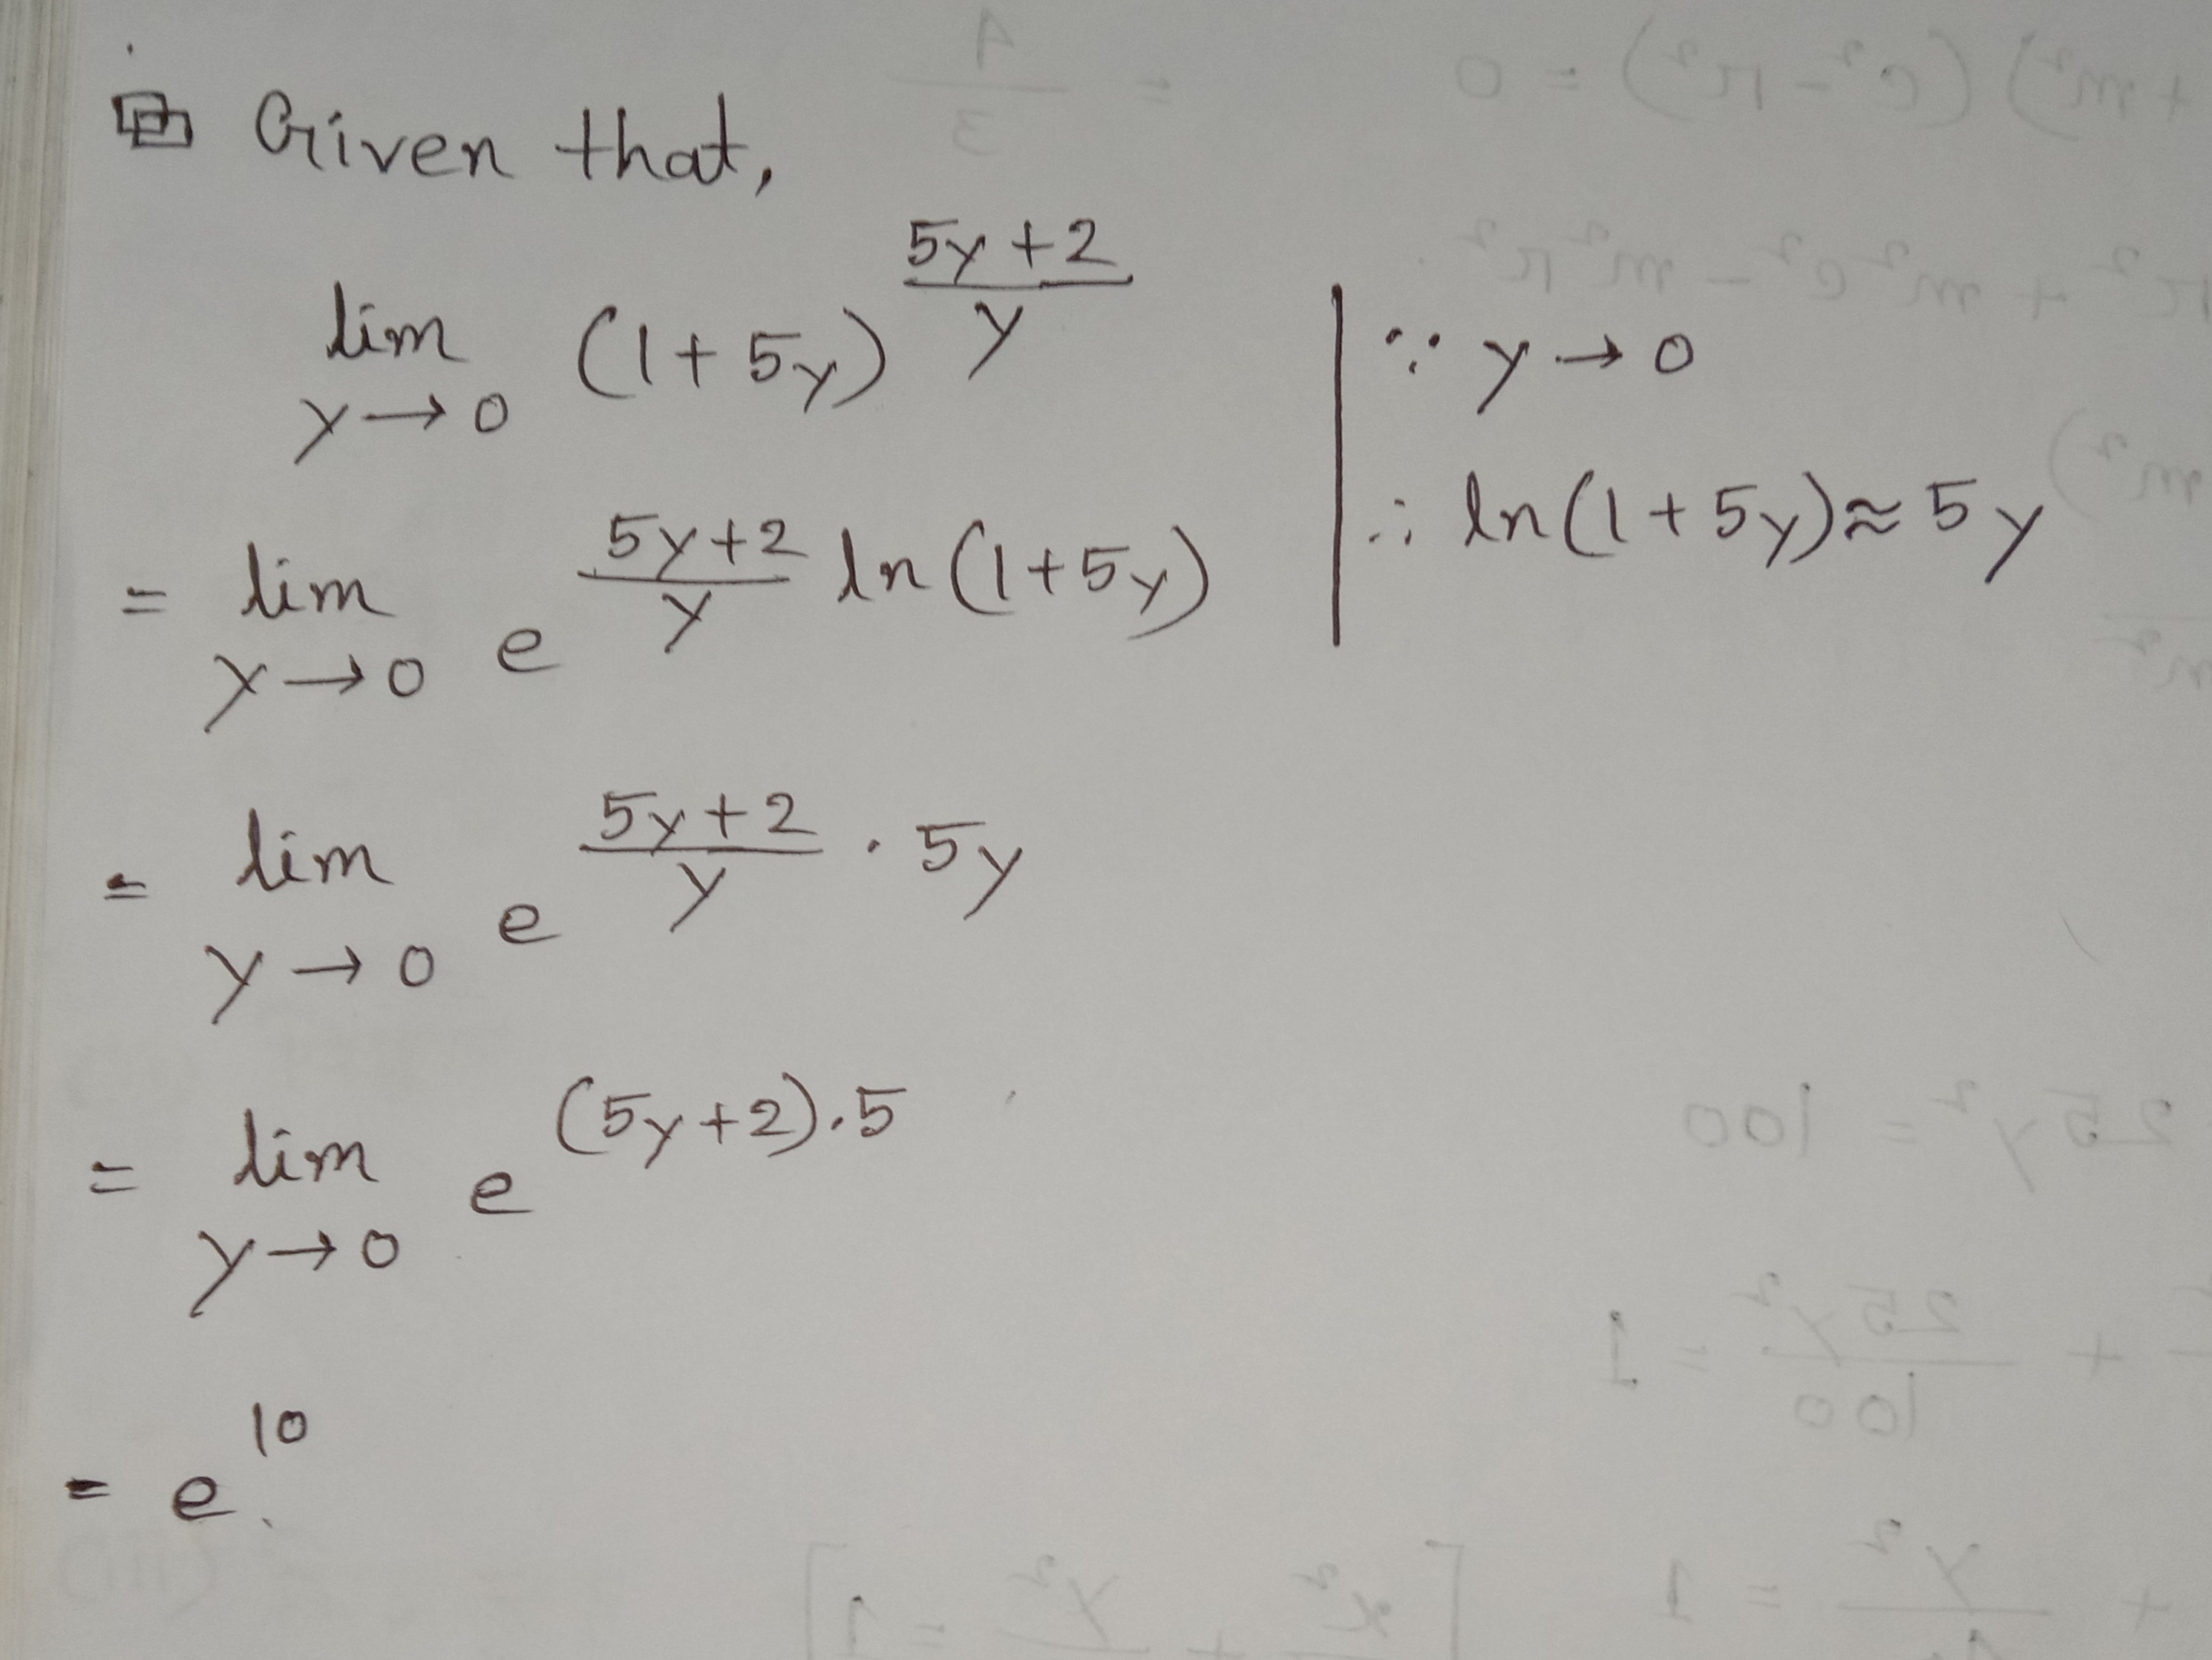 Given that,
lim y→0 (1+5y)^((5y+2)/y)
∵ y→0
= lim y→0 e^((5y+2)/y ln(1+5y))
∴ ln(1+5y)≈5y
= lim y→0 e^((5y+2)/y · 5y)
= lim y→0 e^((5y+2).5)
= e^10.